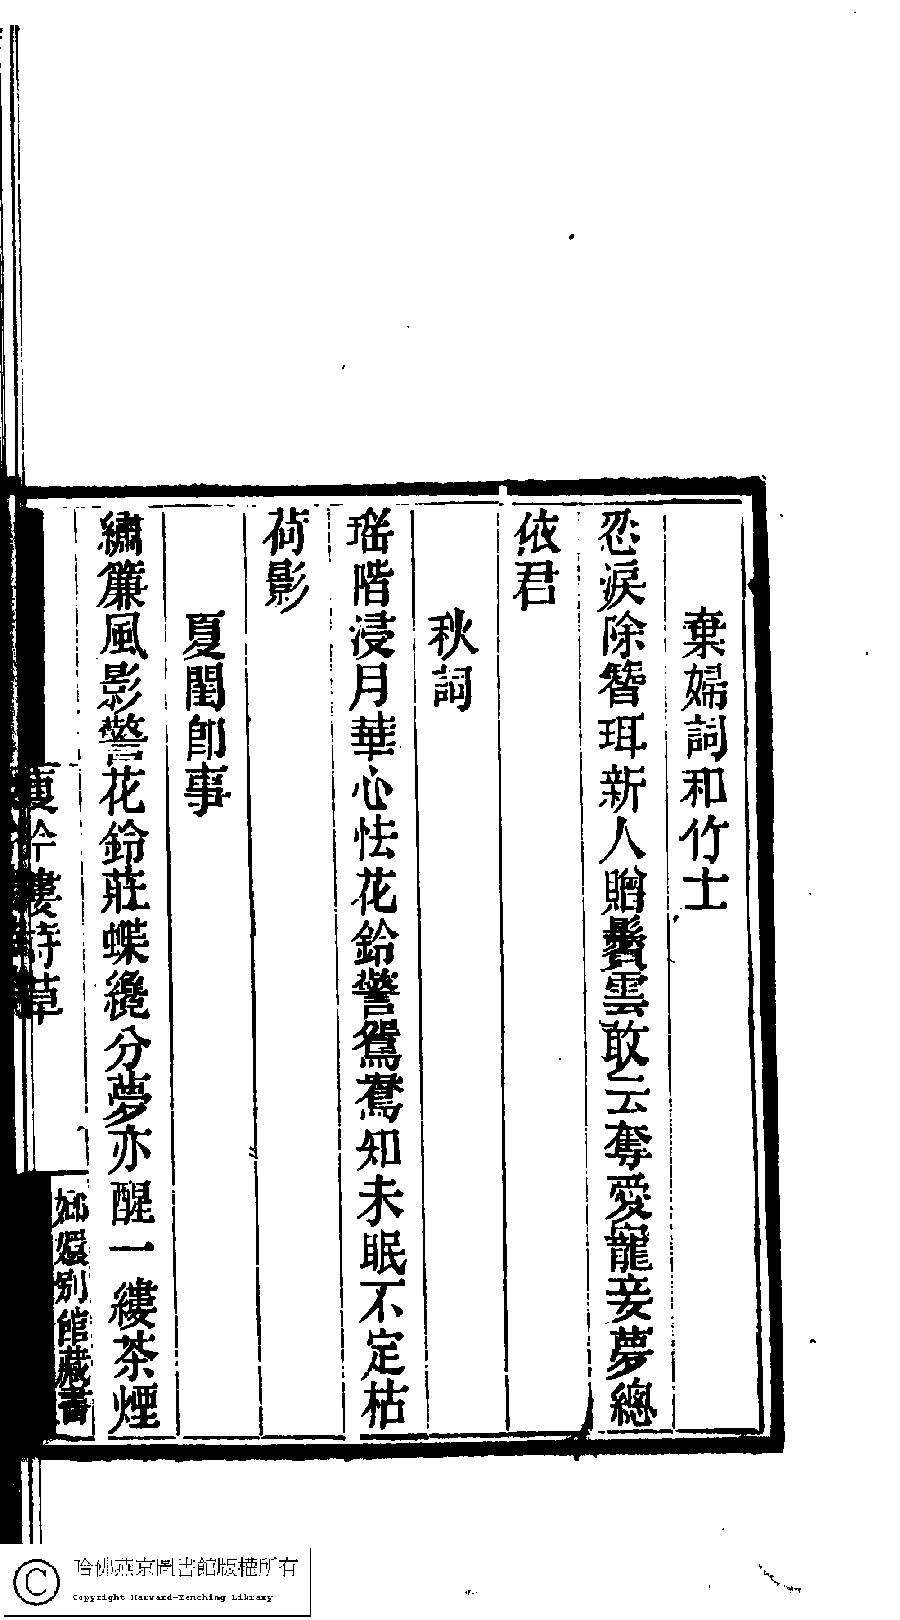 棄婦詞和竹士
忍淚除簪珥新人贈鬢雲敢云奪愛寵妾夢總
依君
秋詞
瑤階浸月華心怯花鈴警鴛鴦知未眠不定枯
荷影
夏閨卽事
繡簾風影警花鈴莊蝶纔分夢亦醒一縷茶煙
瘦吟樓詩草
嫏嬛別館藏書
哈佛燕京圖書館版權所有
Copyright Harvard-Yenching Library